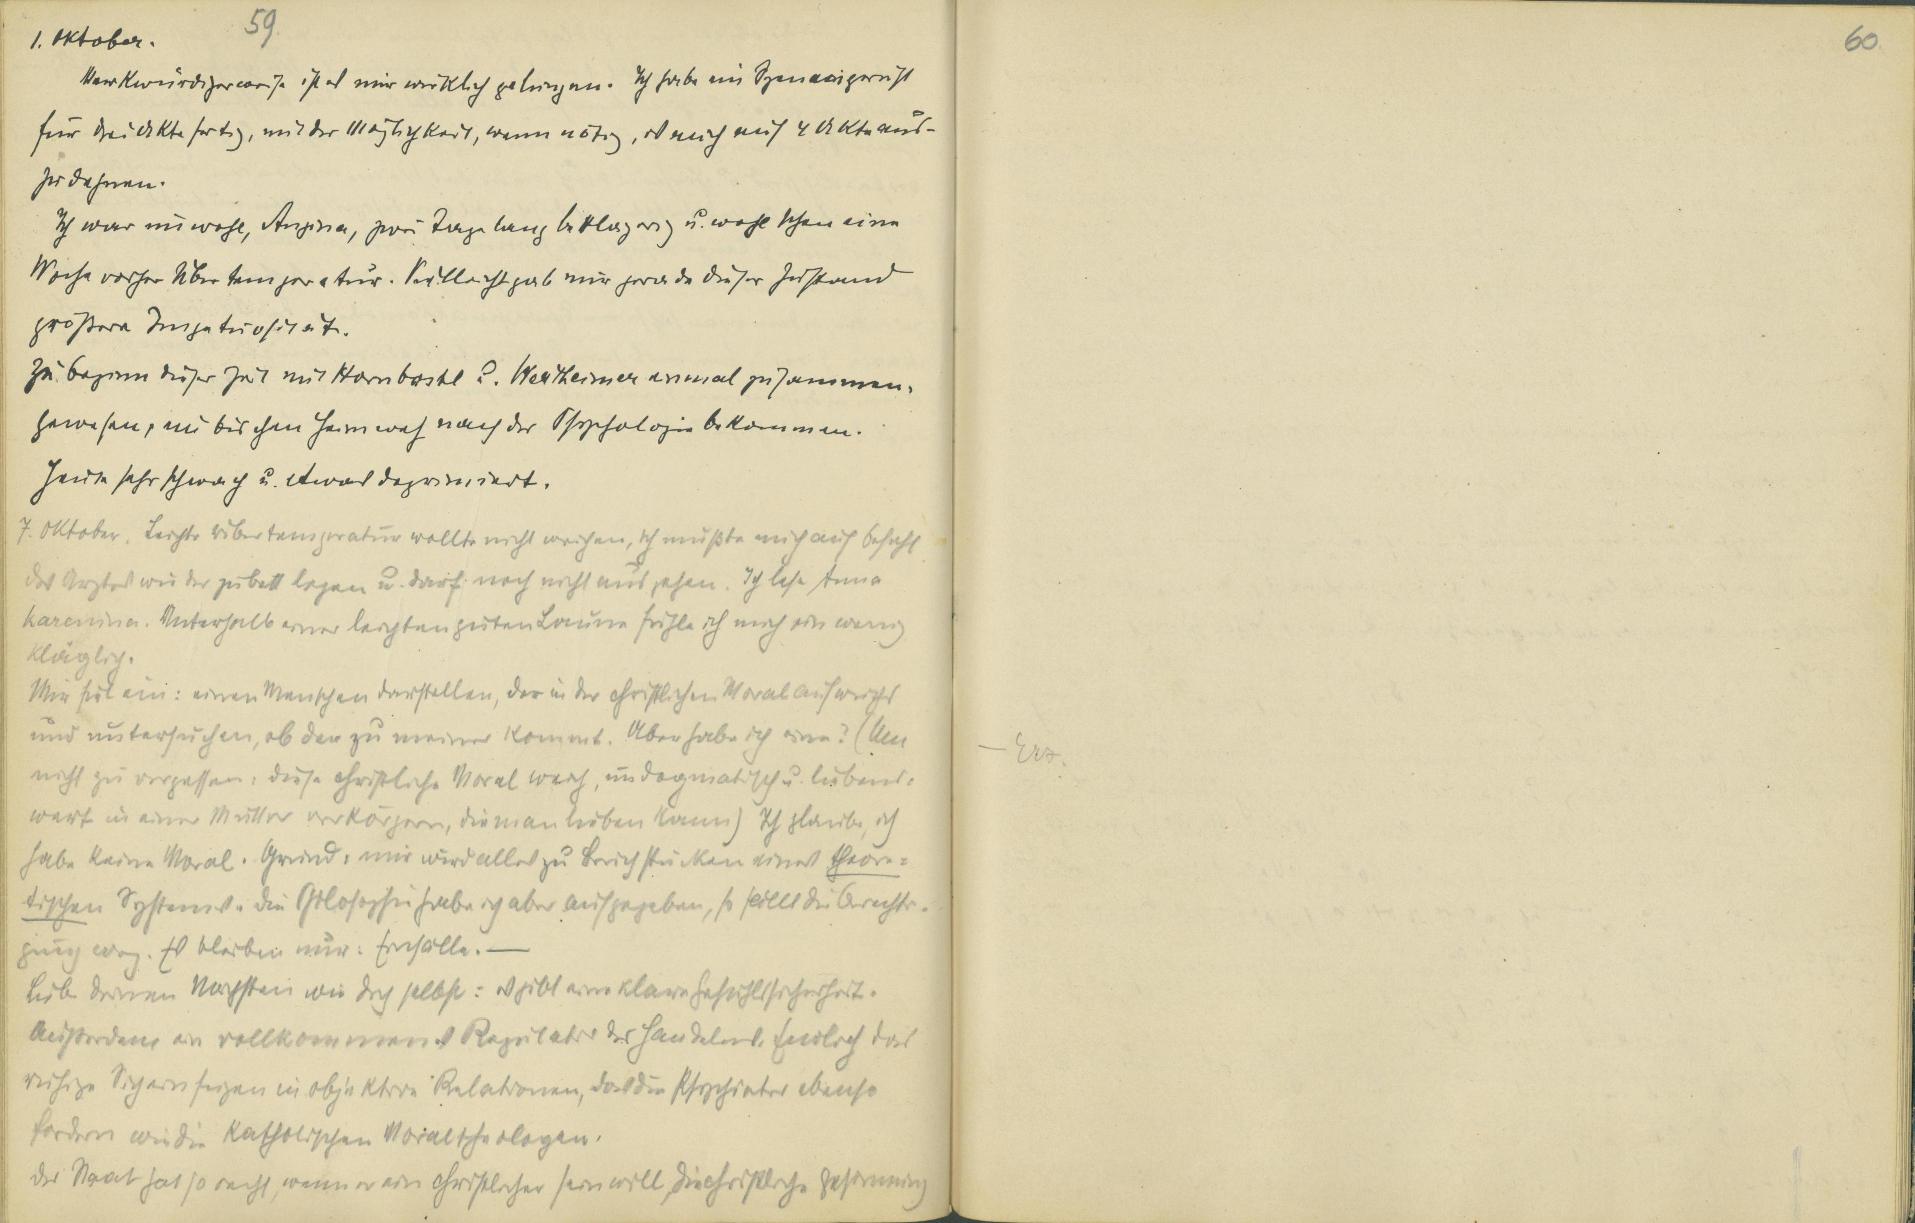 59
1. Oktober.
Merkwürdigerweise ist es mir wirklich gelungen. Ich habe ein Szenengerüst
für drei Akte fertig, mit der Möglichkeit, wenn nötig, es auch auf 4 Akte aus-
zudehnen.
Ich war unwohl, Angina, zwei Tage lang bettlägerig u. wohl schon eine
Woche vorher Übertemperatur. Vielleicht gab mir gerade dieser Zustand
größere Impetuosität.
Zu Beginn dieser Zeit mit Hornbostel u. Wertheimer einmal zusammen-
gewesen, ein bischen Heimweh nach der Psychologie bekommen.
Heute sehr schwach u. etwas deprimiert.
7. Oktober. Leichte Übertemperatur wollte nicht weichen, ich mußte mich auf Befehl
des Arztes wieder zubett legen u. darf noch nicht ausgehen. Ich lese Anna
Karenina. Unterhalb einer leichten guten Laune fühle ich mich ein wenig
kläglich.
Mir fiel ein: einen Menschen darstellen, der in der christlichen Moral aufwächst
und untersuchen, ob der zu meiner kommt. Aber habe ich eine? (Um
nicht zu vergessen: diese christliche Moral weich, undogmatisch u. liebens-
wert in einer Mutter verkörpern, die man lieben kann) Ich glaube, ich
habe keine Moral. Grund: mir wird alles zu Bruchstücken eines theore=
tischen Systems. Die Philosophie habe ich aber aufgegeben, so fällt die Berechti-
gung weg. Es bleiben nur: Einfälle. —
Liebe deinen Nächsten wie dich selbst: es gibt eine klare Gefühlssicherheit.
Außerdem ein vollkommenes Regulativ des Handelns. Endlich das
ruhige Sicheinfügen in objektive Relationen, das die Psychiater ebenso
fordern wie die katholischen Moraltheologen.
Der Staat hat so recht, wenn er ein christlicher sein will, die christliche Gesinnung
60
— Erz.